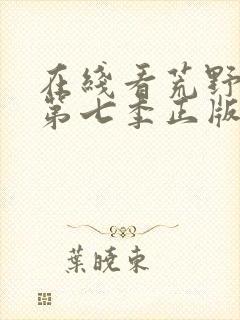 在綫看荒野
第七季正版
葉曉東